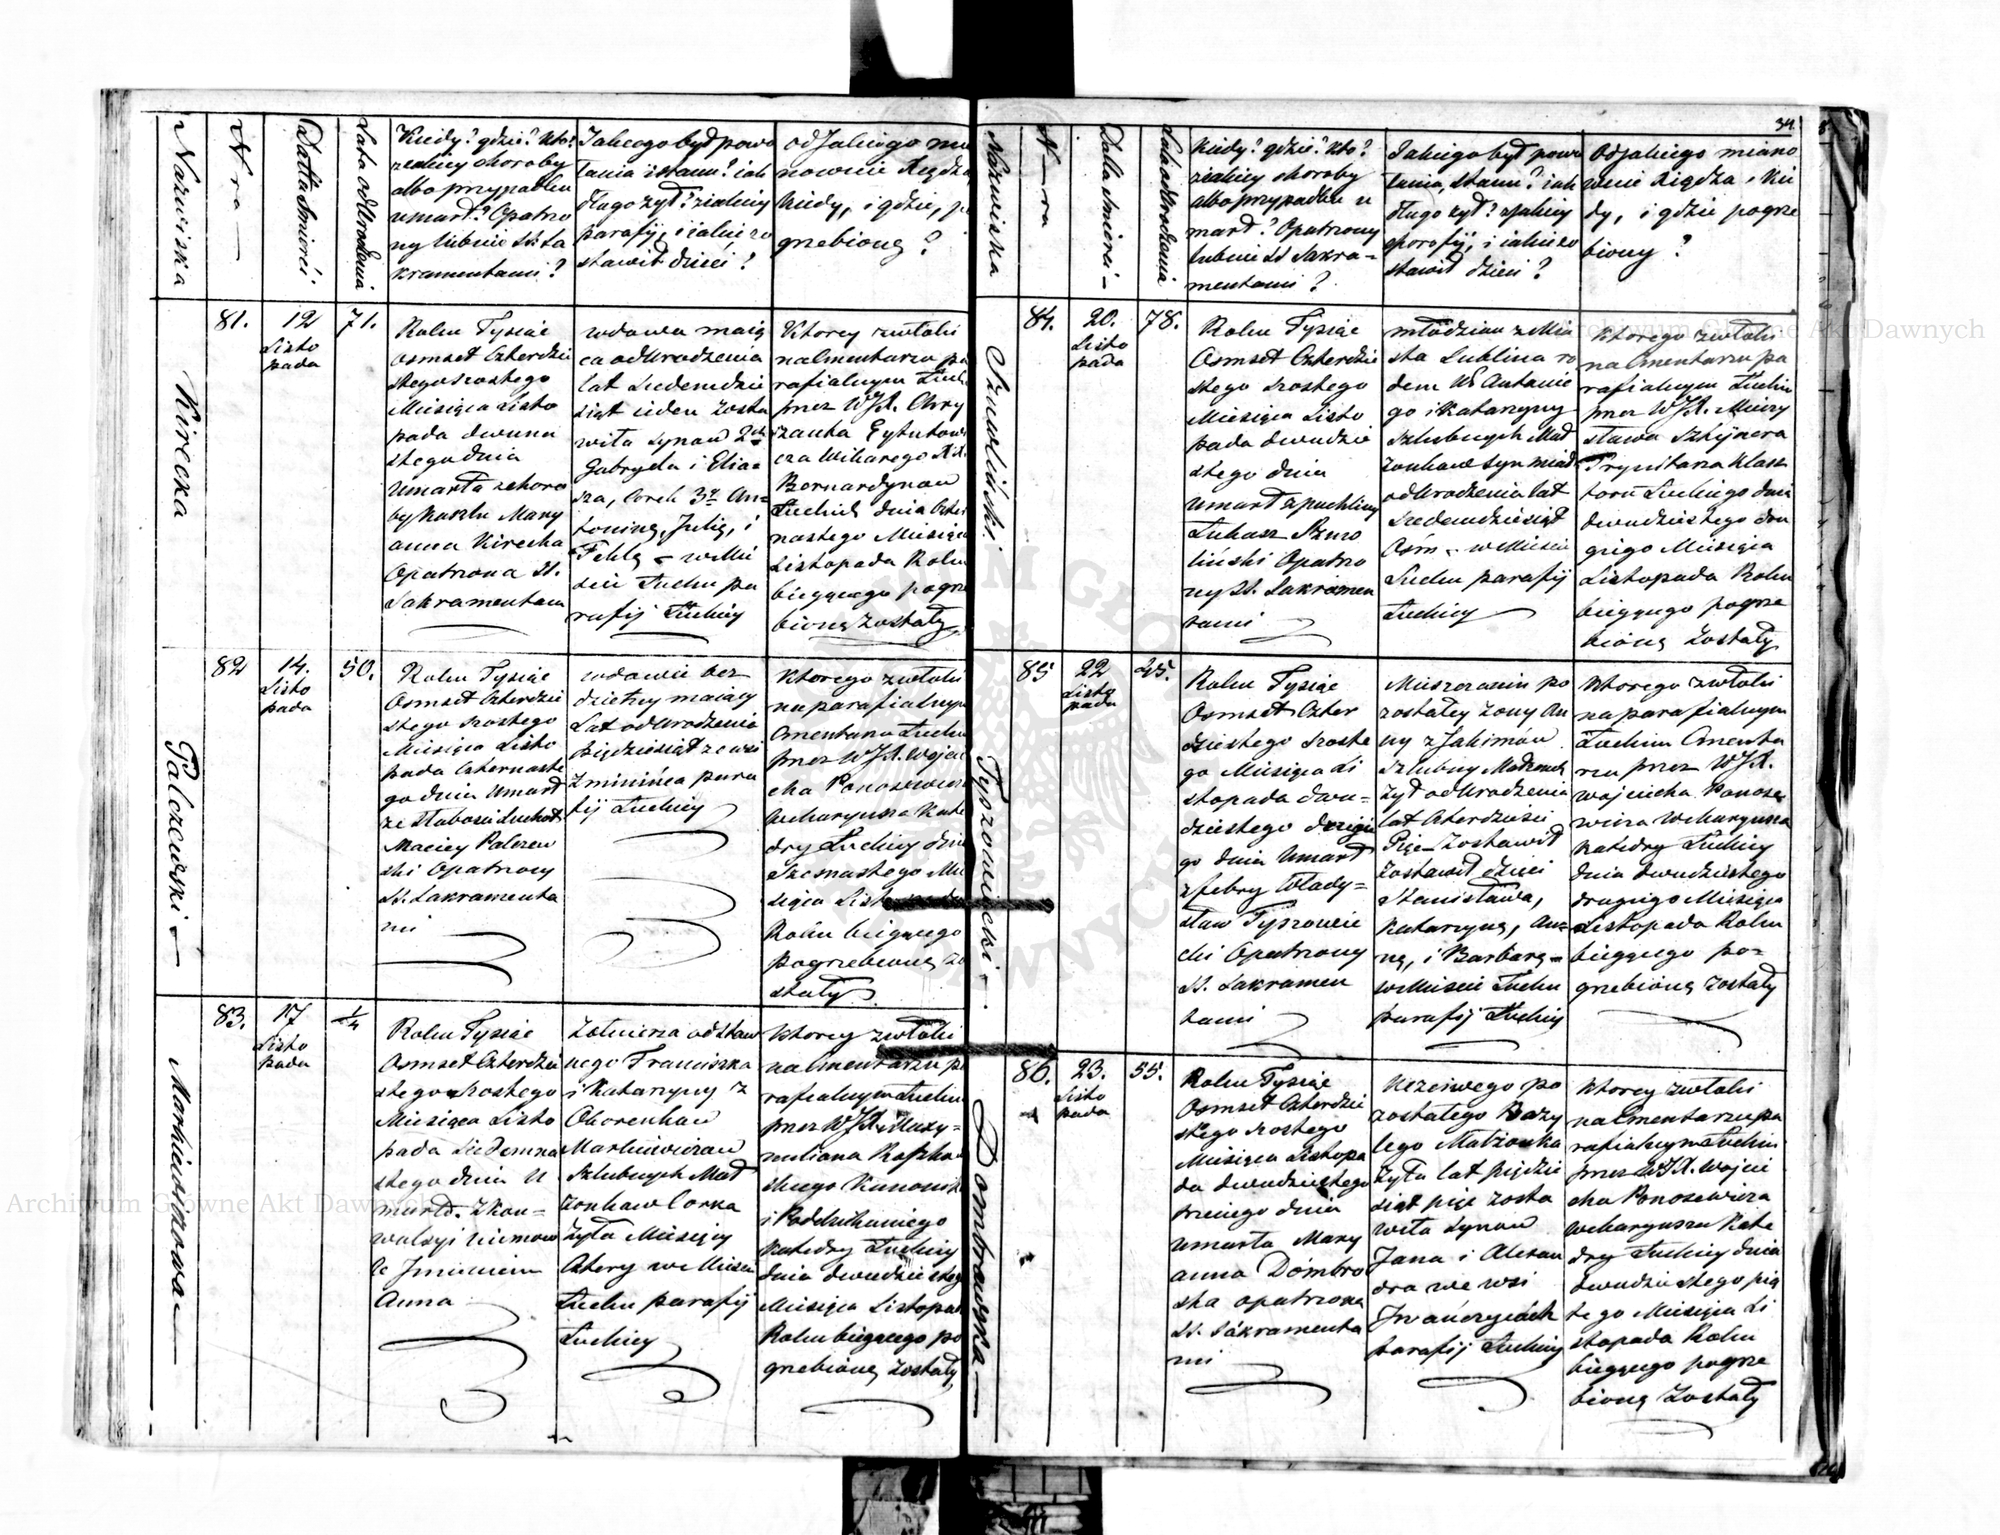 Nazwiska
Nra
Datta Smierci
Lata od Urodzenia
Kiedy? gdzie? kto?
z jakiey choroby
albo przypadku
umarł? Opatrzo
ny lubnie SS. Sa
kramentami?
Jakiego był powo
łania i stanu? iak
długo żył? z iakiey
parafij, i iakie zo
stawił dzieci?
od Jakiego mia
nowicie Xiędza,
kiedy, i gdzie, po
grzebiony?
Kirecka
81.
12
Listo
pada
71.
Roku Tysiąc
Osmset Czterdzie
stego szostego
Miesiąca Listo
pada dwuna
stego dnia
Umarła z choro
by kaszlu Mary
anna Kirecka
Opatrzona SS.
Sakramentam
wdowa maią
ca od Urodzenia
lat Siedemdzie
siąt ieden Zosta
wiła Synow 2ch
Gabryela i Elia
sza, Corek 3y An
toninę, Julię, i
Teklę w Mie
ście Łucku pa
rafij Łuckiey
Ktorey zwłoki
na Cmentarzu pa
rafialnym Łuck
przez WJX. Chry
zanta
cza Wikarego XX.
Bernardynow
Łuckich dnia Czter
nastego Miesiąca
Listopada Roku
bieżącego pogrze
bione zostały
Palczewski
82
14.
Listo
pada
50.
Roku Tysiąc
Osmset Czterdzie
stego szostego
Miesiąca Listo
pada Czternaste
go dnia Umarł
ze słabości Suchot
Maciey Palczew
ski Opatrzony
SS. Sakramenta
mi
wdowiec bez
dzietny maiący
Lat od Urodzenia
Pięćdziesiąt ze wsi
Zmininca para
fij Łuckiey
Ktorego zwłoki
na parafialnym
Cmentarzu Łuck
przez WJX. Wojcie
cha Ponosewicza
Wikaryusza Kate
dry Łuckiey dnia
Szesnastego Mie
siąca Listopada
Roku bieżącego
pogrzebione zo
stały
Markiewiczowa
83.
17
Listo
pada
1/4
Roku Tysiąc
Osmset Czterdzie
stego szostego
Miesiąca Listo
pada Siedemna
stego dnia U
marło z kon
wulsyi niemow
le Jmieniem
Anna
Zołnierza odstaw
nego Franciszka
i Katarzyny z
Markiewiczow
Szlubnych Mał
żonkow Corka
żyła Miesięcy
Cztery w Mieście
Łucku parafij
Łuckiey
Ktorey zwłoki
na Cmentarzu pa
rafialnym Łuckim
przez WJX. Maxy
miliana
skiego Kanonika
i Poddziekaniego
Katedry Łuckiey
dnia dwudziestego
Miesiąca Listopada
Roku bieżącego po
grzebione zostały
34.
Nazwiska
Nra
Data Smierci
Lata od Urodzenia
Kiedy? gdzie? kto?
z iakiey choroby
albo przypadku u
marł? Opatrzony
lubnie SS Sakra
mentami?
Jakiego był powo
łania, stanu? iak
długo żył? z iakiey
parafij, i iakie zo
stawił dzieci?
Od Jakiego miano
wicie Xiędza, kie
dy, i gdzie pogrze
biony?
Szmoliński
84.
20.
Listo
pada
78.
Roku Tysiąc
Osmset Czterdzie
stego szostego
Miesiąca Listo
pada dwudzie
stego dnia
Umarł z puchliny
Łukasz Szmo
liński Opatrzo
ny SS. Sakramen
tami
młodzian z Mia
sta Lublina ro
dem W Antonie
go i Katarzyny
Szlubnych Mał
żonkow syn miał
od Urodzenia lat
Siedemdziesiąt
Ośm w Mieście
Łucku parafij
Łuckiey
Ktorego zwłoki
na Cmentarzu pa
rafialnym Łuckim
przez WJX. Mieczy
sława
Trynitarza Klasz
toru Łuckiego dnia
dwudziestego dru
giego Miesiąca
Listopada Roku
bieżącego pogrze
bione zostały
Tyszowiecki
85
22
Listo
pada
45.
Roku Tysiąc
Osmset Czter
dziestego szoste
go Miesiąca Li
stopada dwu
dziestego drugie
go dnia Umarł
z febry Włady
sław Tyszowie
cki Opatrzony
SS. Sakramen
tami
Mieszczanin po
zostałey żony An
ny z Jakimów
Szlubny Małżonek
żył od Urodzenia
lat Czterdzieści
Pięć Zostawił
Zostawił dzieci
Stanisława,
Katarzynę, An
nę, i Barbarę
w Mieście Łucku
parafij Łuckiey
Ktorego zwłoki
na parafialnym
Łuckim Cmenta
rzu przez WJX.
Wojciecha Ponose
wicza Wikaryusza
Katedry Łuckiey
dnia dwudziestego
drugiego Miesiąca
Listopada Roku
bieżącego po
grzebione zostały
Dombrowska
86.
23.
Listo
pada
55.
Roku Tysiąc
Osmset Czterdzie
stego szostego
Miesiąca Listopa
da dwudziestego
trzeciego dnia
Umarła Mary
anna Dombro
ska opatrzona
SS. Sakramenta
mi
Uczciwego po
zostałego Bazy
lego Małżonka
żyła lat pięćdzie
siąt pięć zosta
wiła Synow
Jana i Alexan
dra we wsi
Jwańczycach
parafij Łuckiey
Ktorey zwłoki
na Cmentarzu pa
rafialnym Łuckim
przez WJX. Wojcie
cha Ponosewicza
Wikaryusza Kate
dry Łuckiey dnia
dwudziestego pią
tego Miesiąca Li
stopada Roku
bieżącego pogrze
bione zostały
Archiwum Główne Akt Dawnych
Archiwum Główne Akt Dawnych